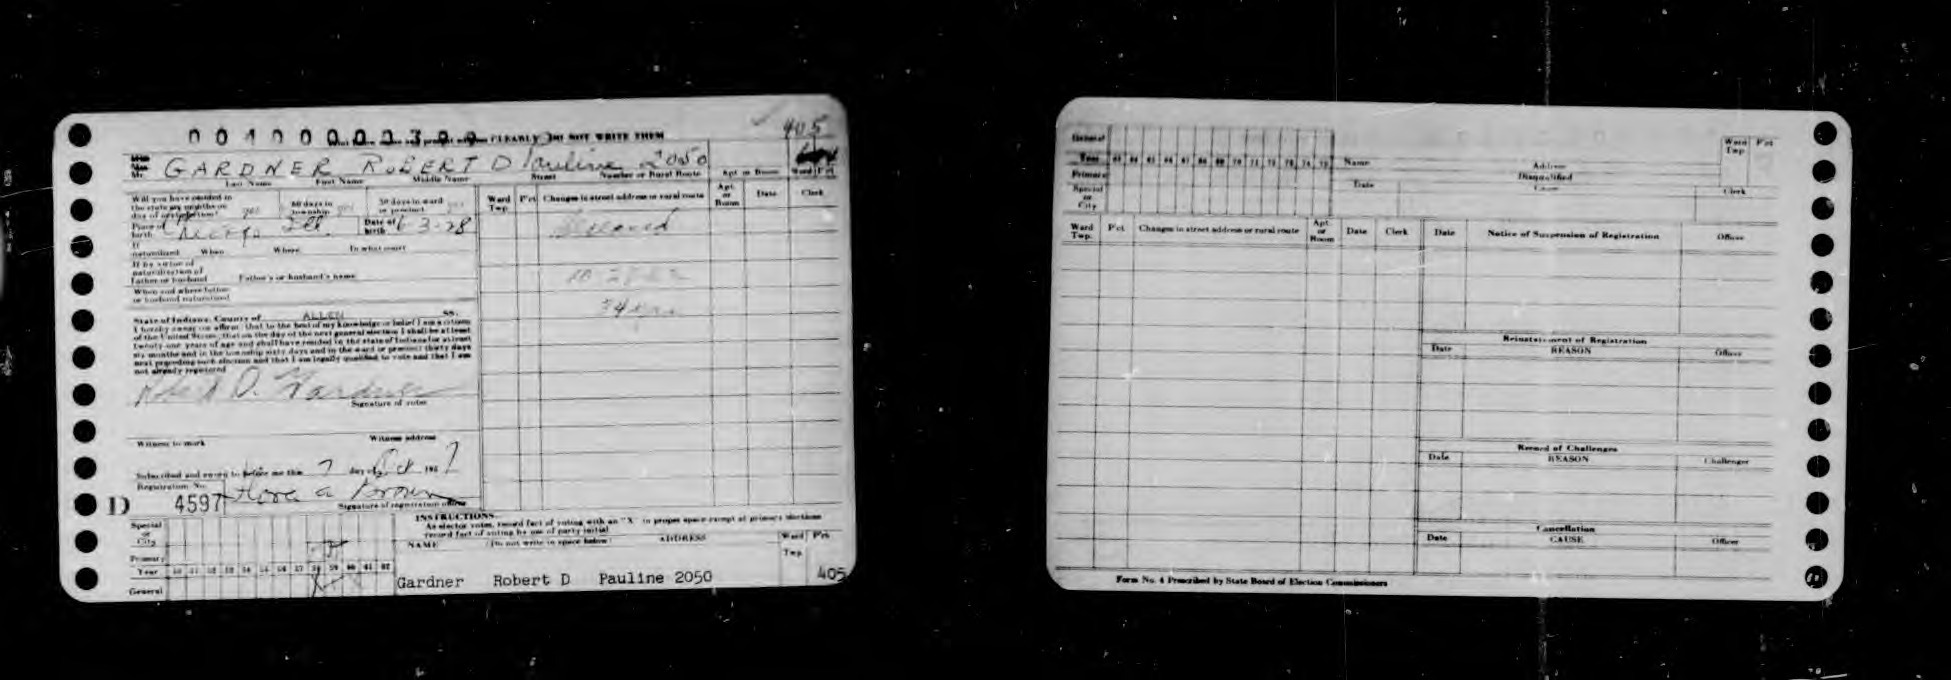 00400000399
CLEARLY DO NOT WRITE THEM
405
Mr. GARDNER ROBERT D Pauline 2050
Last Name First Name Middle Name Street Number or Rural Route Apt or Room Ward Pct
Will you have resided in the state six months on day of next election? yes 60 days in township yes 30 days in ward or precinct yes
Ward Twp. P'ct Changes in street address or rural route Apt. or Room Date Clerk
Place of birth Chicago Ill Date of birth 6-3-28
If naturalized When Where In what court
If by virtue of naturalization of Father or husband Father's or husband's name
When and where father or husband naturalized
State of Indiana, County of ALLEN SS.
I hereby swear (or affirm) that to the best of my knowledge or belief I am a citizen
of the United States, that on the day of the next general election I shall be at least
twenty-one years of age and shall have resided in the state of Indiana for at least
six months and in the township sixty days and in the ward or precinct thirty days
next preceding such election and that I am legally qualified to vote and that I am
not already registered
Robert D. Gardner
Signature of voter
Witness to mark Witness address
Subscribed and sworn to before me this 7 day of Oct 195 7
Registration No.
D 4597 Flora A Brown
Signature of registration officer
INSTRUCTIONS
As elector votes, record fact of voting with an "X" in proper space except at primary elections
record fact of voting by use of party initial
NAME (Do not write in space below) ADDRESS Ward Twp. P'ct
Special or City
Primary
Year 50 51 52 53 54 55 56 57 58 59 60 61 62
General
Gardner Robert D Pauline 2050 405
General
Year 63 64 65 66 67 68 69 70 71 72 73 74 75
Primary
Special or City
Name Address Ward Twp P'ct
Disqualified
Date Cause Clerk
Ward Twp. P'ct Changes in street address or rural route Apt. or Room Date Clerk
Date Notice of Suspension of Registration Officer
Reinstatement of Registration
Date REASON Officer
Record of Challenges
Date REASON Challenger
Cancellation
Date CAUSE Officer
Form No. 4 Prescribed by State Board of Election Commissioners